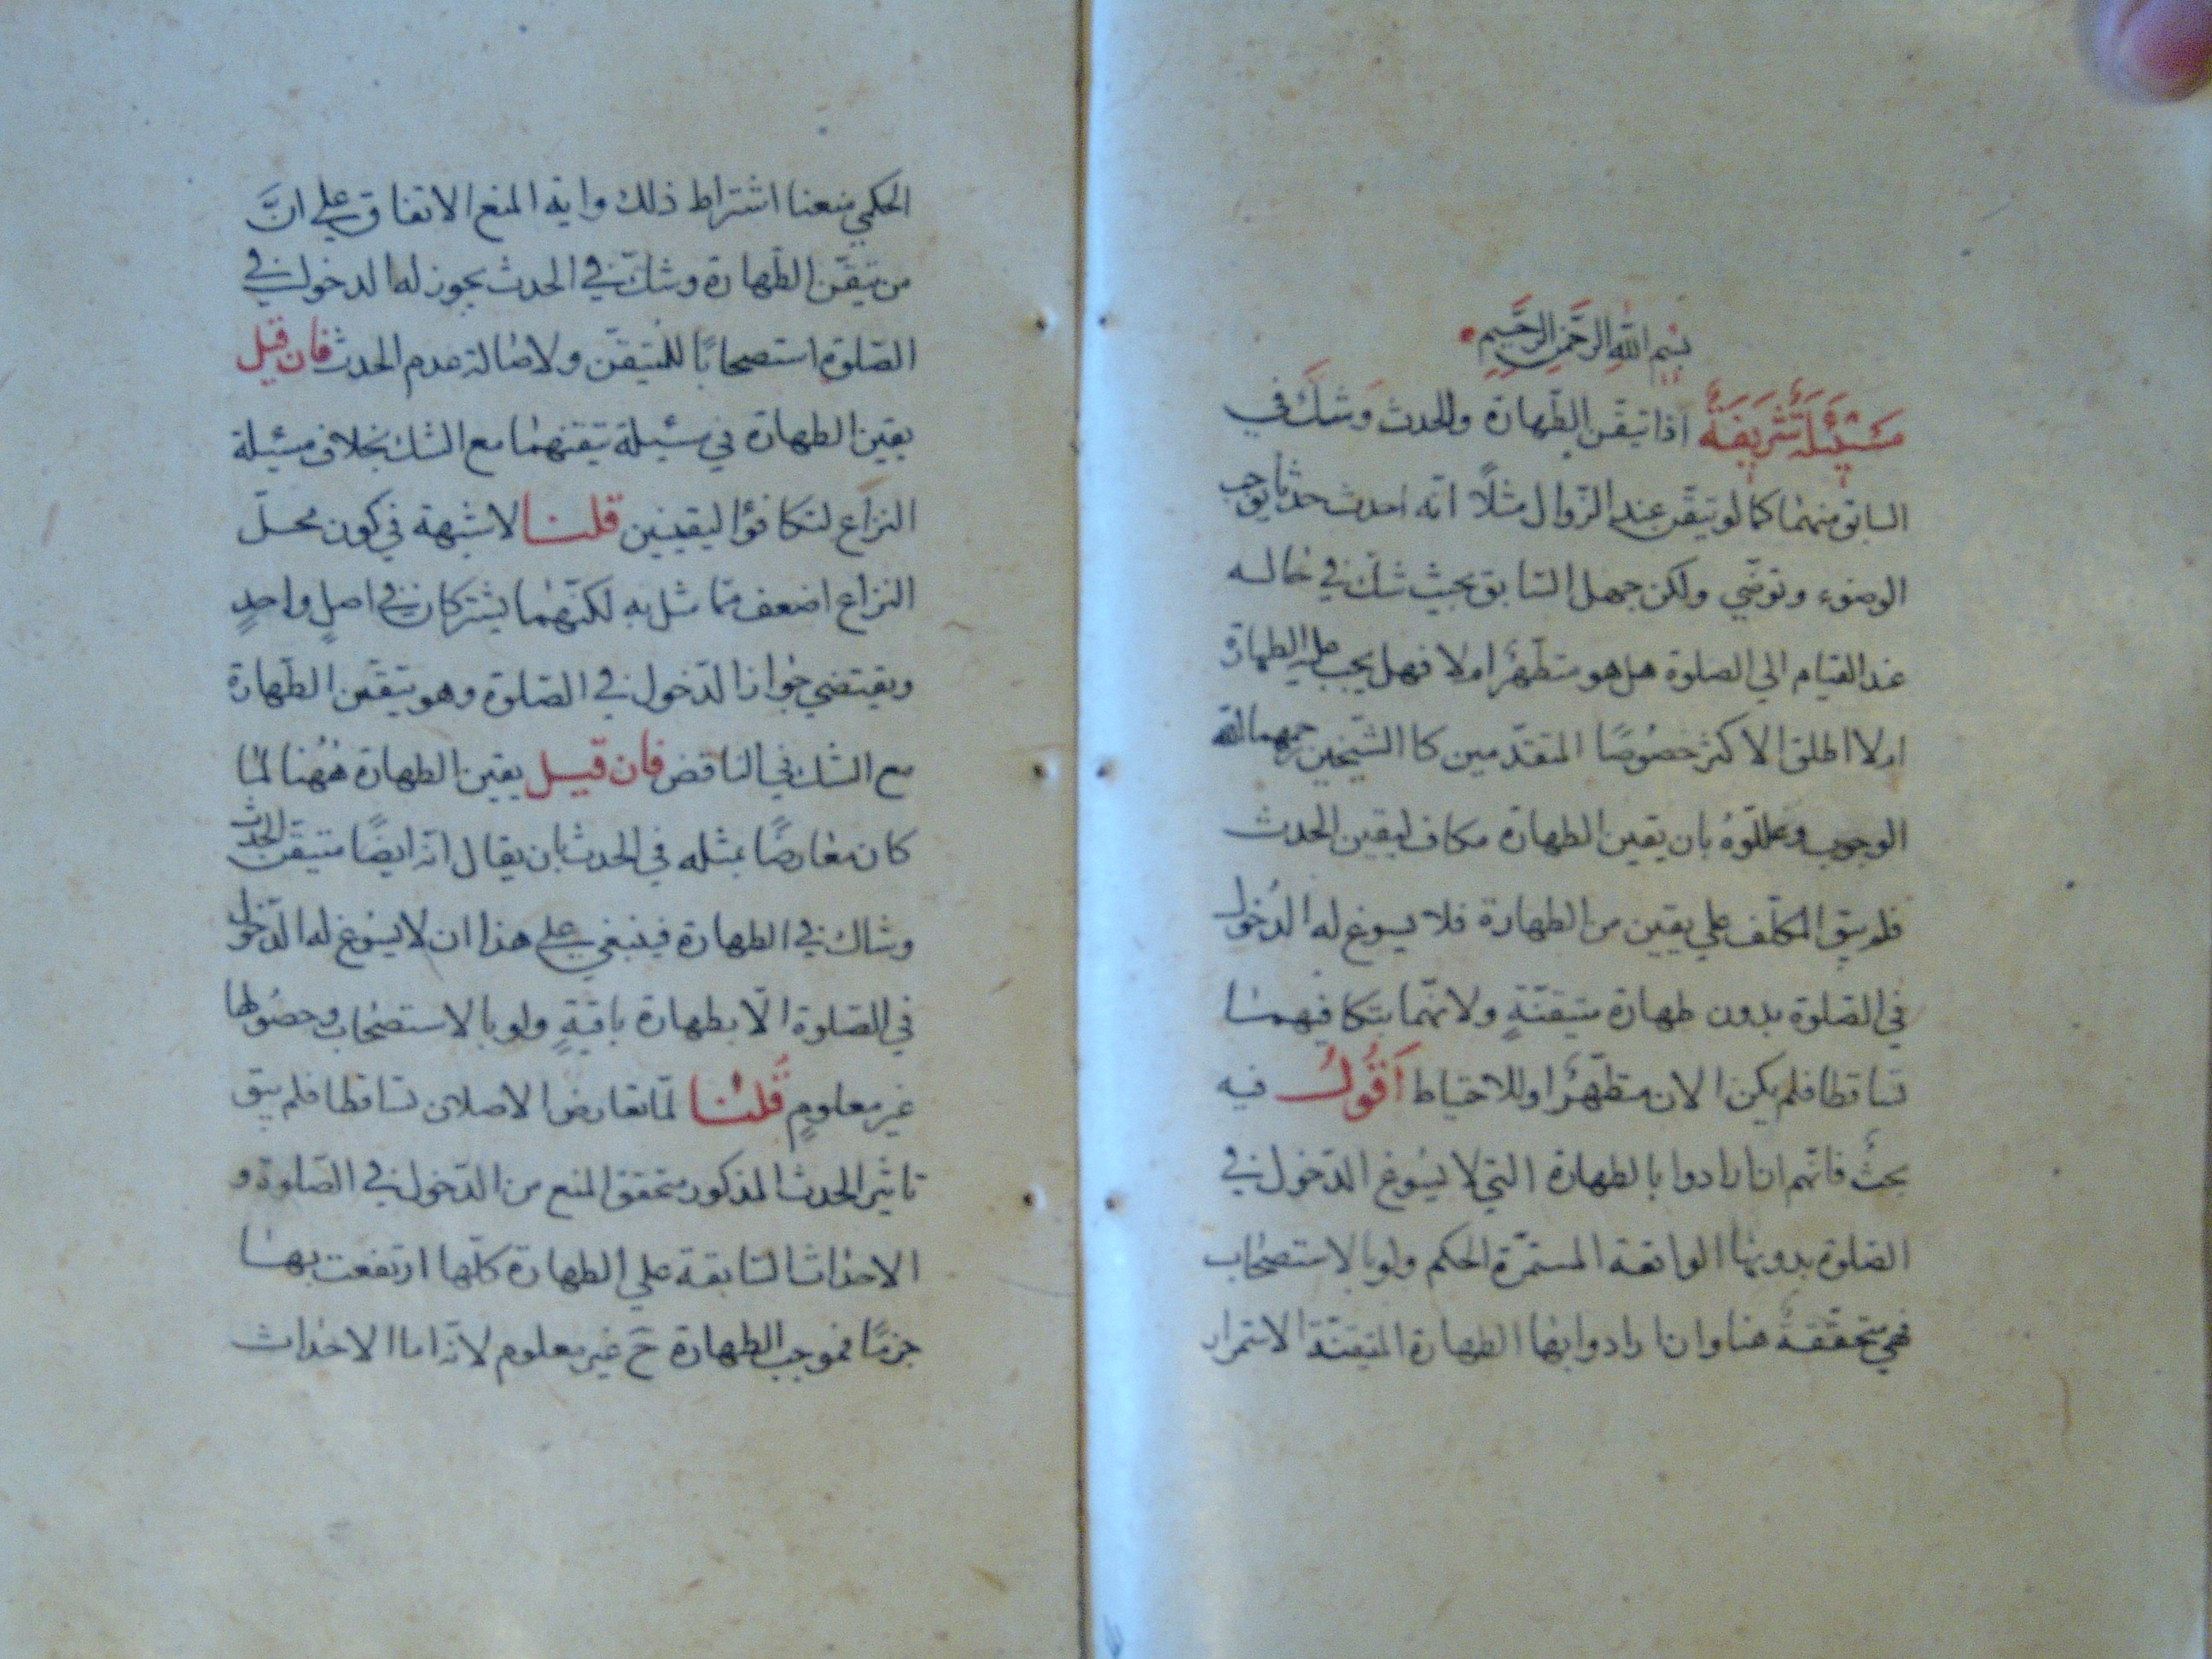 بسم الله الرحمن الرحيم
مَسْئَلَةٌ شَرِيفَةٌ اذا تيقن الطهارة والحدث وشك في
السابق منهما كما لو تيقن عند الزوال مثلًا انه احدث حدثا يوجب
الوضوء وتوضي ولكن جهل السابق بحيث شك في حاله
عند القيام الي الصلوة هل هو متطهرًا ام لا فهل يجب عليه الطهارة
ام لا اطلق الاكثر خصوصًا المتقدمين كا الشيخين رحمهما الله
الوجوب وعللوه بان يقين الطهارة مكاف ليقين الحدث
فلم يبق المكلف علي يقين من الطهارة فلا يسوغ له الدخول
في الصلوة بدون طهارة متيقنةٍ ولانهما بتكافيهما
تساقطا فلم يكن الان متطهرًا وللاحتياط اَقُولُ فيه
بحث فانهم ان ارادوا بالطهارة التي لا يسوغ الدخول في
الصلوة بدونها الواقعة المستمرة الحكم ولو بالاستصحاب
فهي متحققة هنا وان ارادوا بها الطهارة المتيقنة الاستمرار
الحكمي منعنا اشتراط ذلك واية المنع الاتفاق علي انَّ
من تيقن الطهارة وشك في الحدث يجوز له الدخول في
الصلوة استصحابًا للمتيقن ولاصالة عدم الحدث فان قيل
يقين الطهارة في مسئلة تيقنهما مع الشك بخلاف مسئلة
النزاع لتكافؤ اليقينين قلنا لا شبهة في كون محل
النزاع اضعف مما مثل به لكنهما يشتركان في اصلٍ واحدٍ
ويقتضي جواز الدخول في الصلوة وهو تيقن الطهارة
مع الشك في الناقض فان قيل يقين الطهارة ههنا لما
كان معارضًا بمثله في الحدث بان يقال انه ايضًا متيقن الحدث
وشاك في الطهارة فينبغي علي هذا ان لا يسوغ له الدخول
في الصلوة الا بطهارة باقيةٍ ولو بالاستصحاب وحصولها
غير معلومٍ قُلْنا لما تعارض الاصلان تساقطا فلم يبق
تاثير الحدث المذكور متحقق المنع من الدخول في الصلوة و
الاحداث السابقة علي الطهارة كلها ارتفعت بها
جزمًا فموجب الطهارة ح غير معلوم لانه اما الاحداث